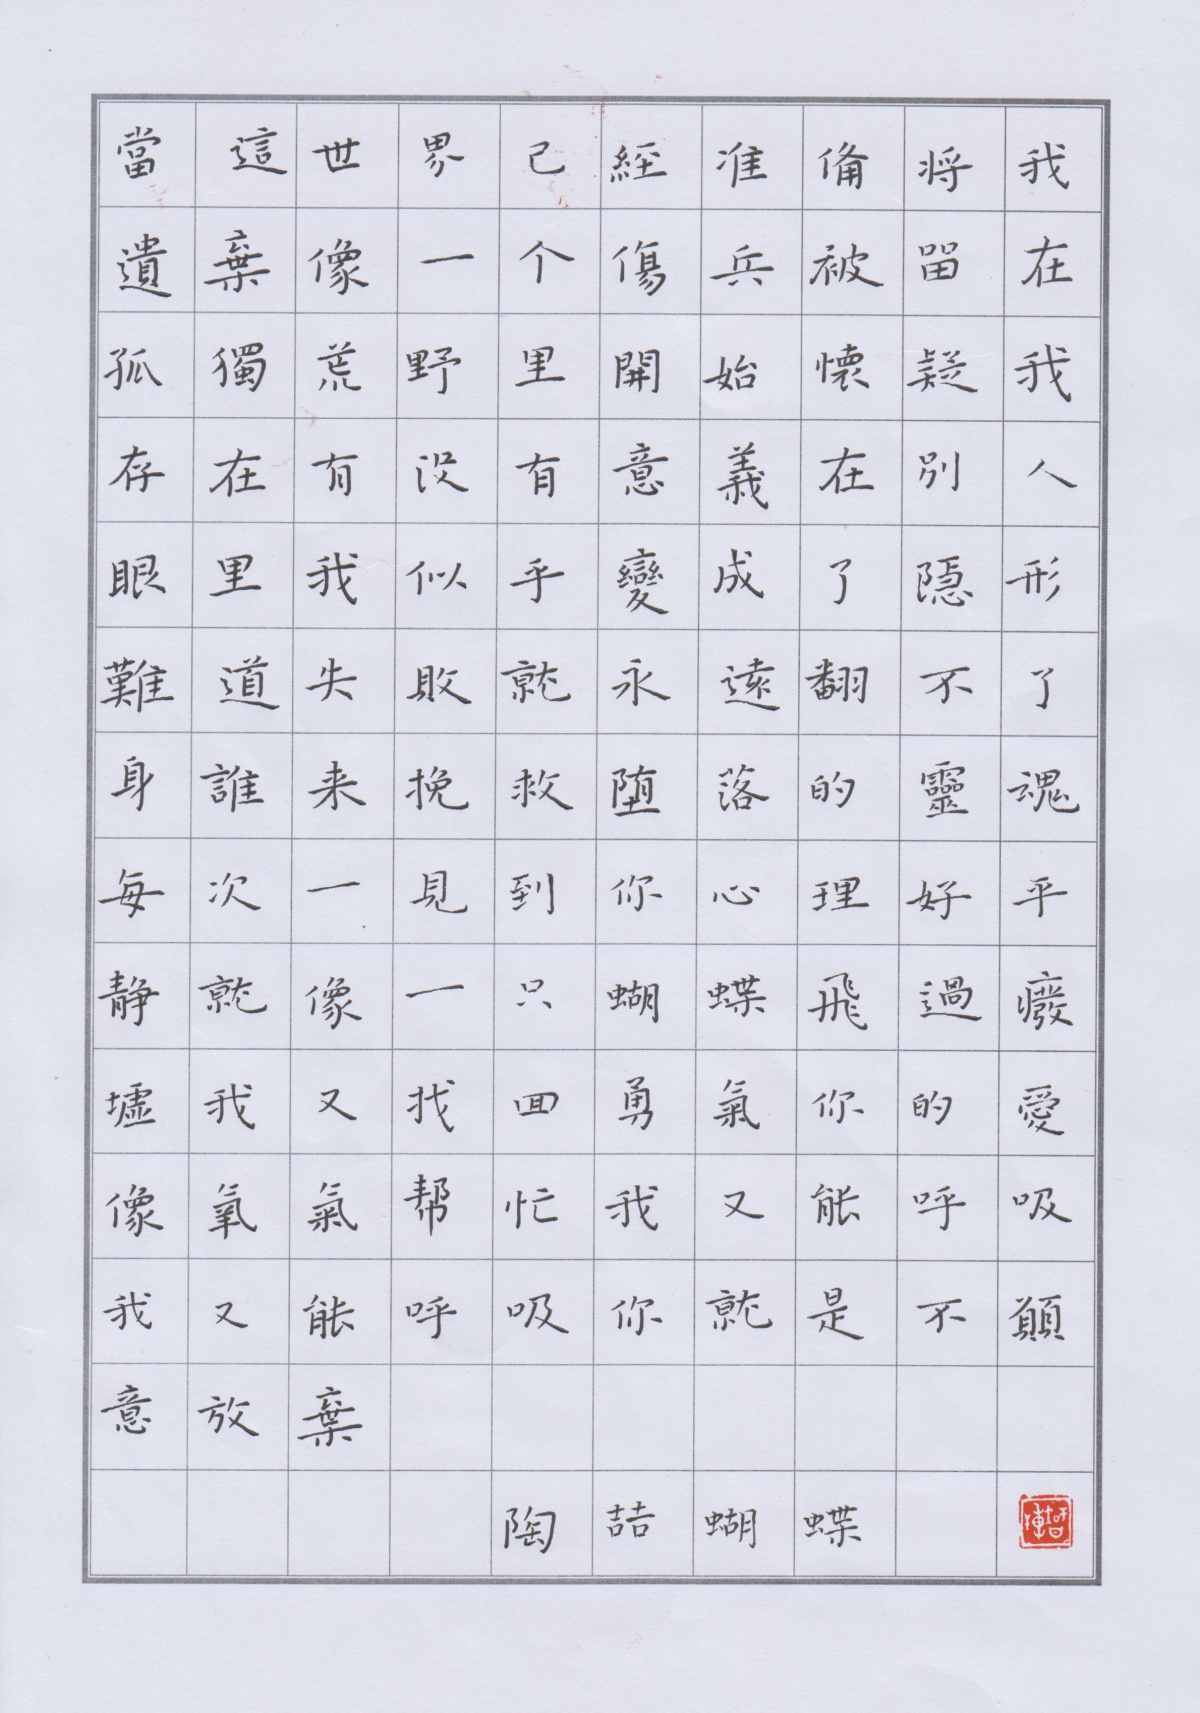 當這世界已經准備將我
遺棄像一个傷兵被留在
孤獨荒野里開始懷疑我
存在有没有意義在别人
眼里我似乎變成了隱形
難道失敗就永遠翻不了
身誰来挽救墮落的靈魂
每次一見到你心理好平
靜就像一只蝴蝶飛過癈
墟我又找回勇氣你的愛
像氧氣帮忙我又能呼吸
我又能呼吸你就是不願
意放棄
陶喆蝴蝶